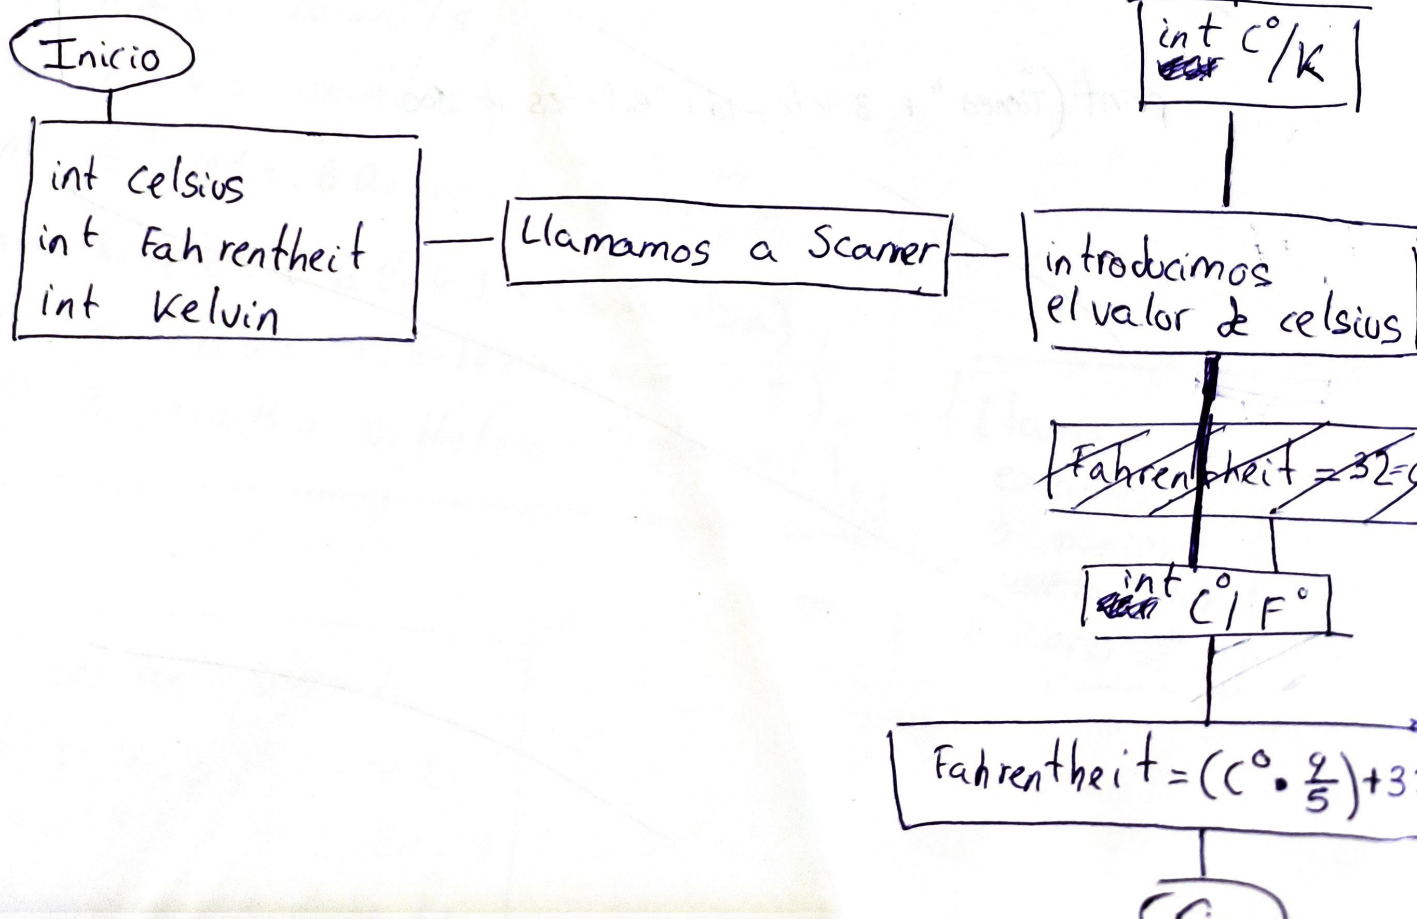 Inicio
int celsius
int Fahrentheit
int Kelvin
Llamamos a Scanner
int C°/K
introducimos
el valor de celsius
Fahrentheit = 32
int C°/F°
Fahrentheit = (C° · 9/5) + 3